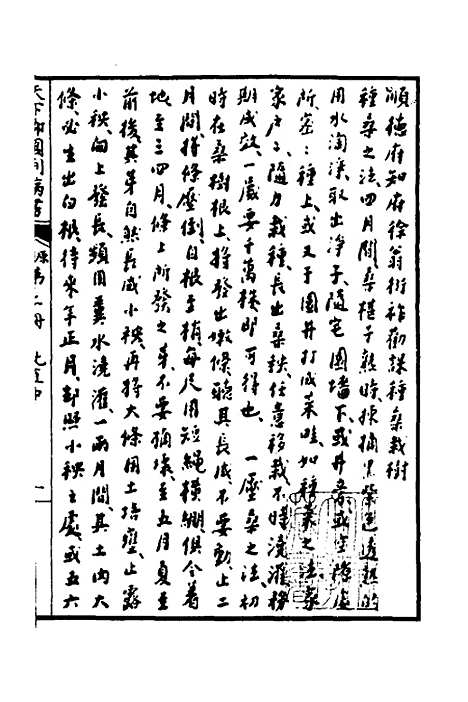 順德府知府徐翁衍祚勸課種桑栽樹
種桑之法四月間桑椹子熟時揀摘黑紫色透熟的
用水淘深取出净子隨宅園墻下或井旁或空隙處
所密密種上或又于園井打成菜畦如種菜之法家
家戶戶隨力栽種長出桑秧任意移栽不時澆灌務
期成效一歲要千萬株即可得也　一壓桑之法初
時在桑樹根上將發出嫩條聽其長成不要動上二
月間將條壓倒自根至梢每尺用短繩橫綳俱令着
地至三四月條上所發之芽不要摘壞至五月夏至
前後其芽自然長成小秧再將大條用土培壅止露
小秧向上發長頻用糞水澆灌一兩月間其土內大
條必生出白根待來年正月却照小秧之處或五六
天下郡國利病書
原第二冊　北直中